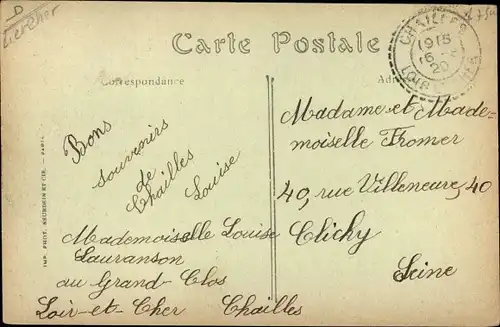 Loir et Cher
Carte Postale
Correspondance
CHAILLES
1915
20
LOIR-ET-CHER
Bons
souvenirs
de
Chailles
Louise
Mademoiselle Louise
Lauranson
au Grand-Clos
Loir-et-Cher Chailles
Madame et Made-
moiselle Fromer
40, rue Villeneuve, 40
Clichy
Seine
IMP. PHOT. NEURDEIN ET CIE. — PARIS